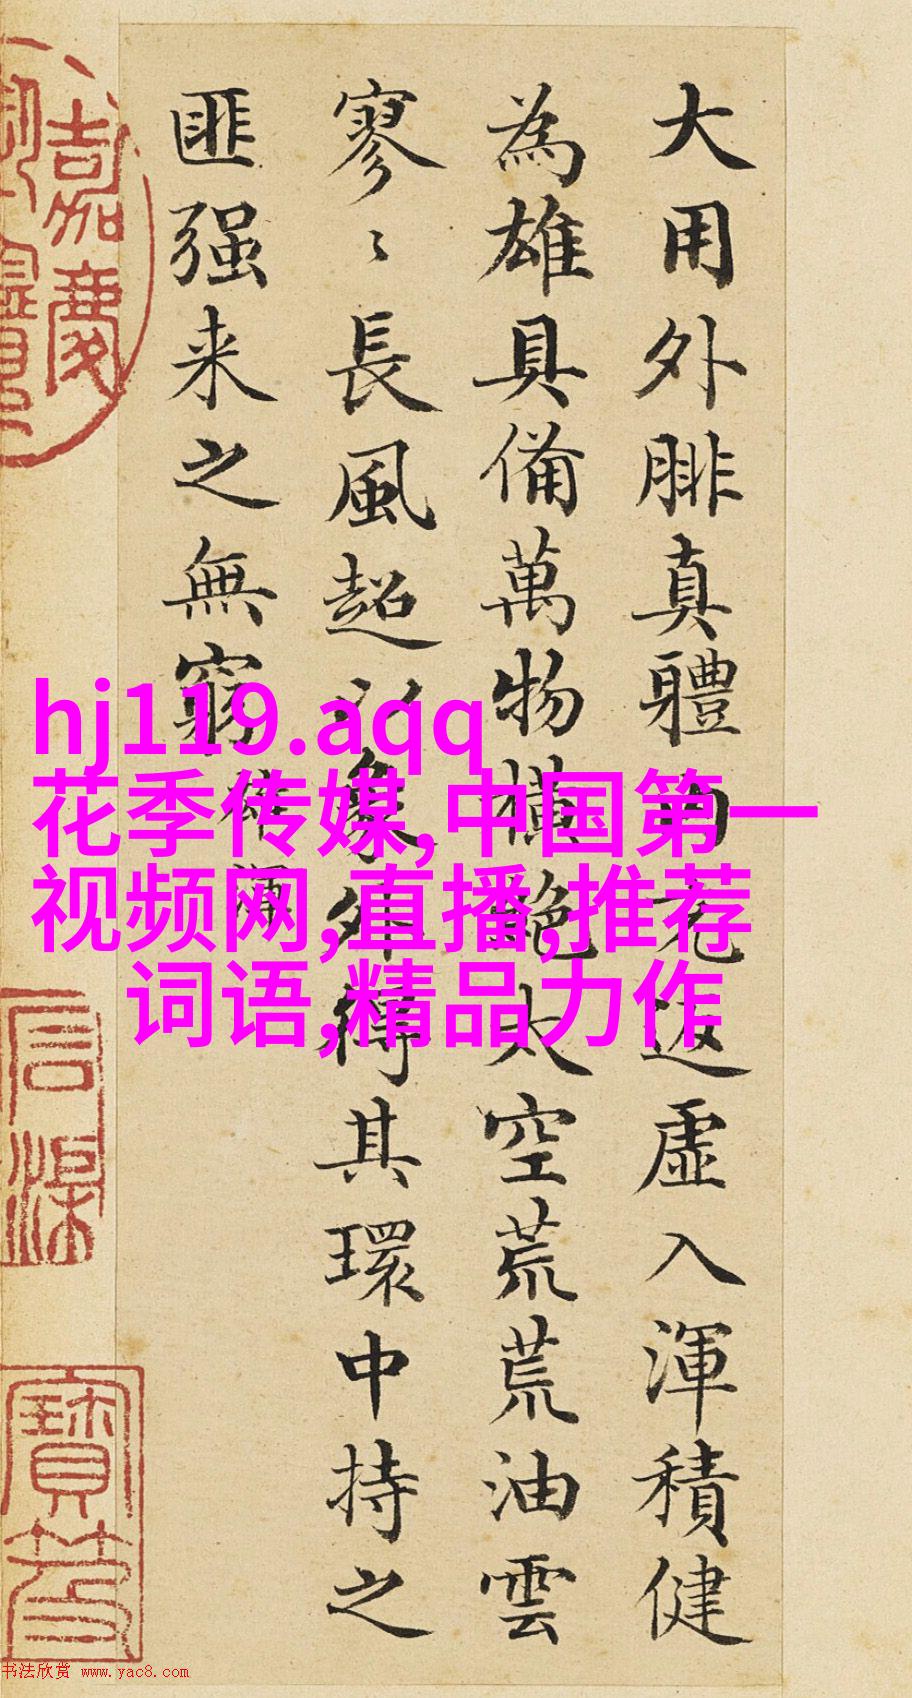 大用外腓真體内充返虛入渾積健
為雄具備萬物橫絶太空荒荒油雲
寥〻長風超以象外得其環中持之
匪强来之無窮
雄渾
hj119.aqq
花季传媒,中国第一
视频网,直播,推荐
词语,精品力作
嘉慶
寶笈
书法欣赏 www.yac8.com